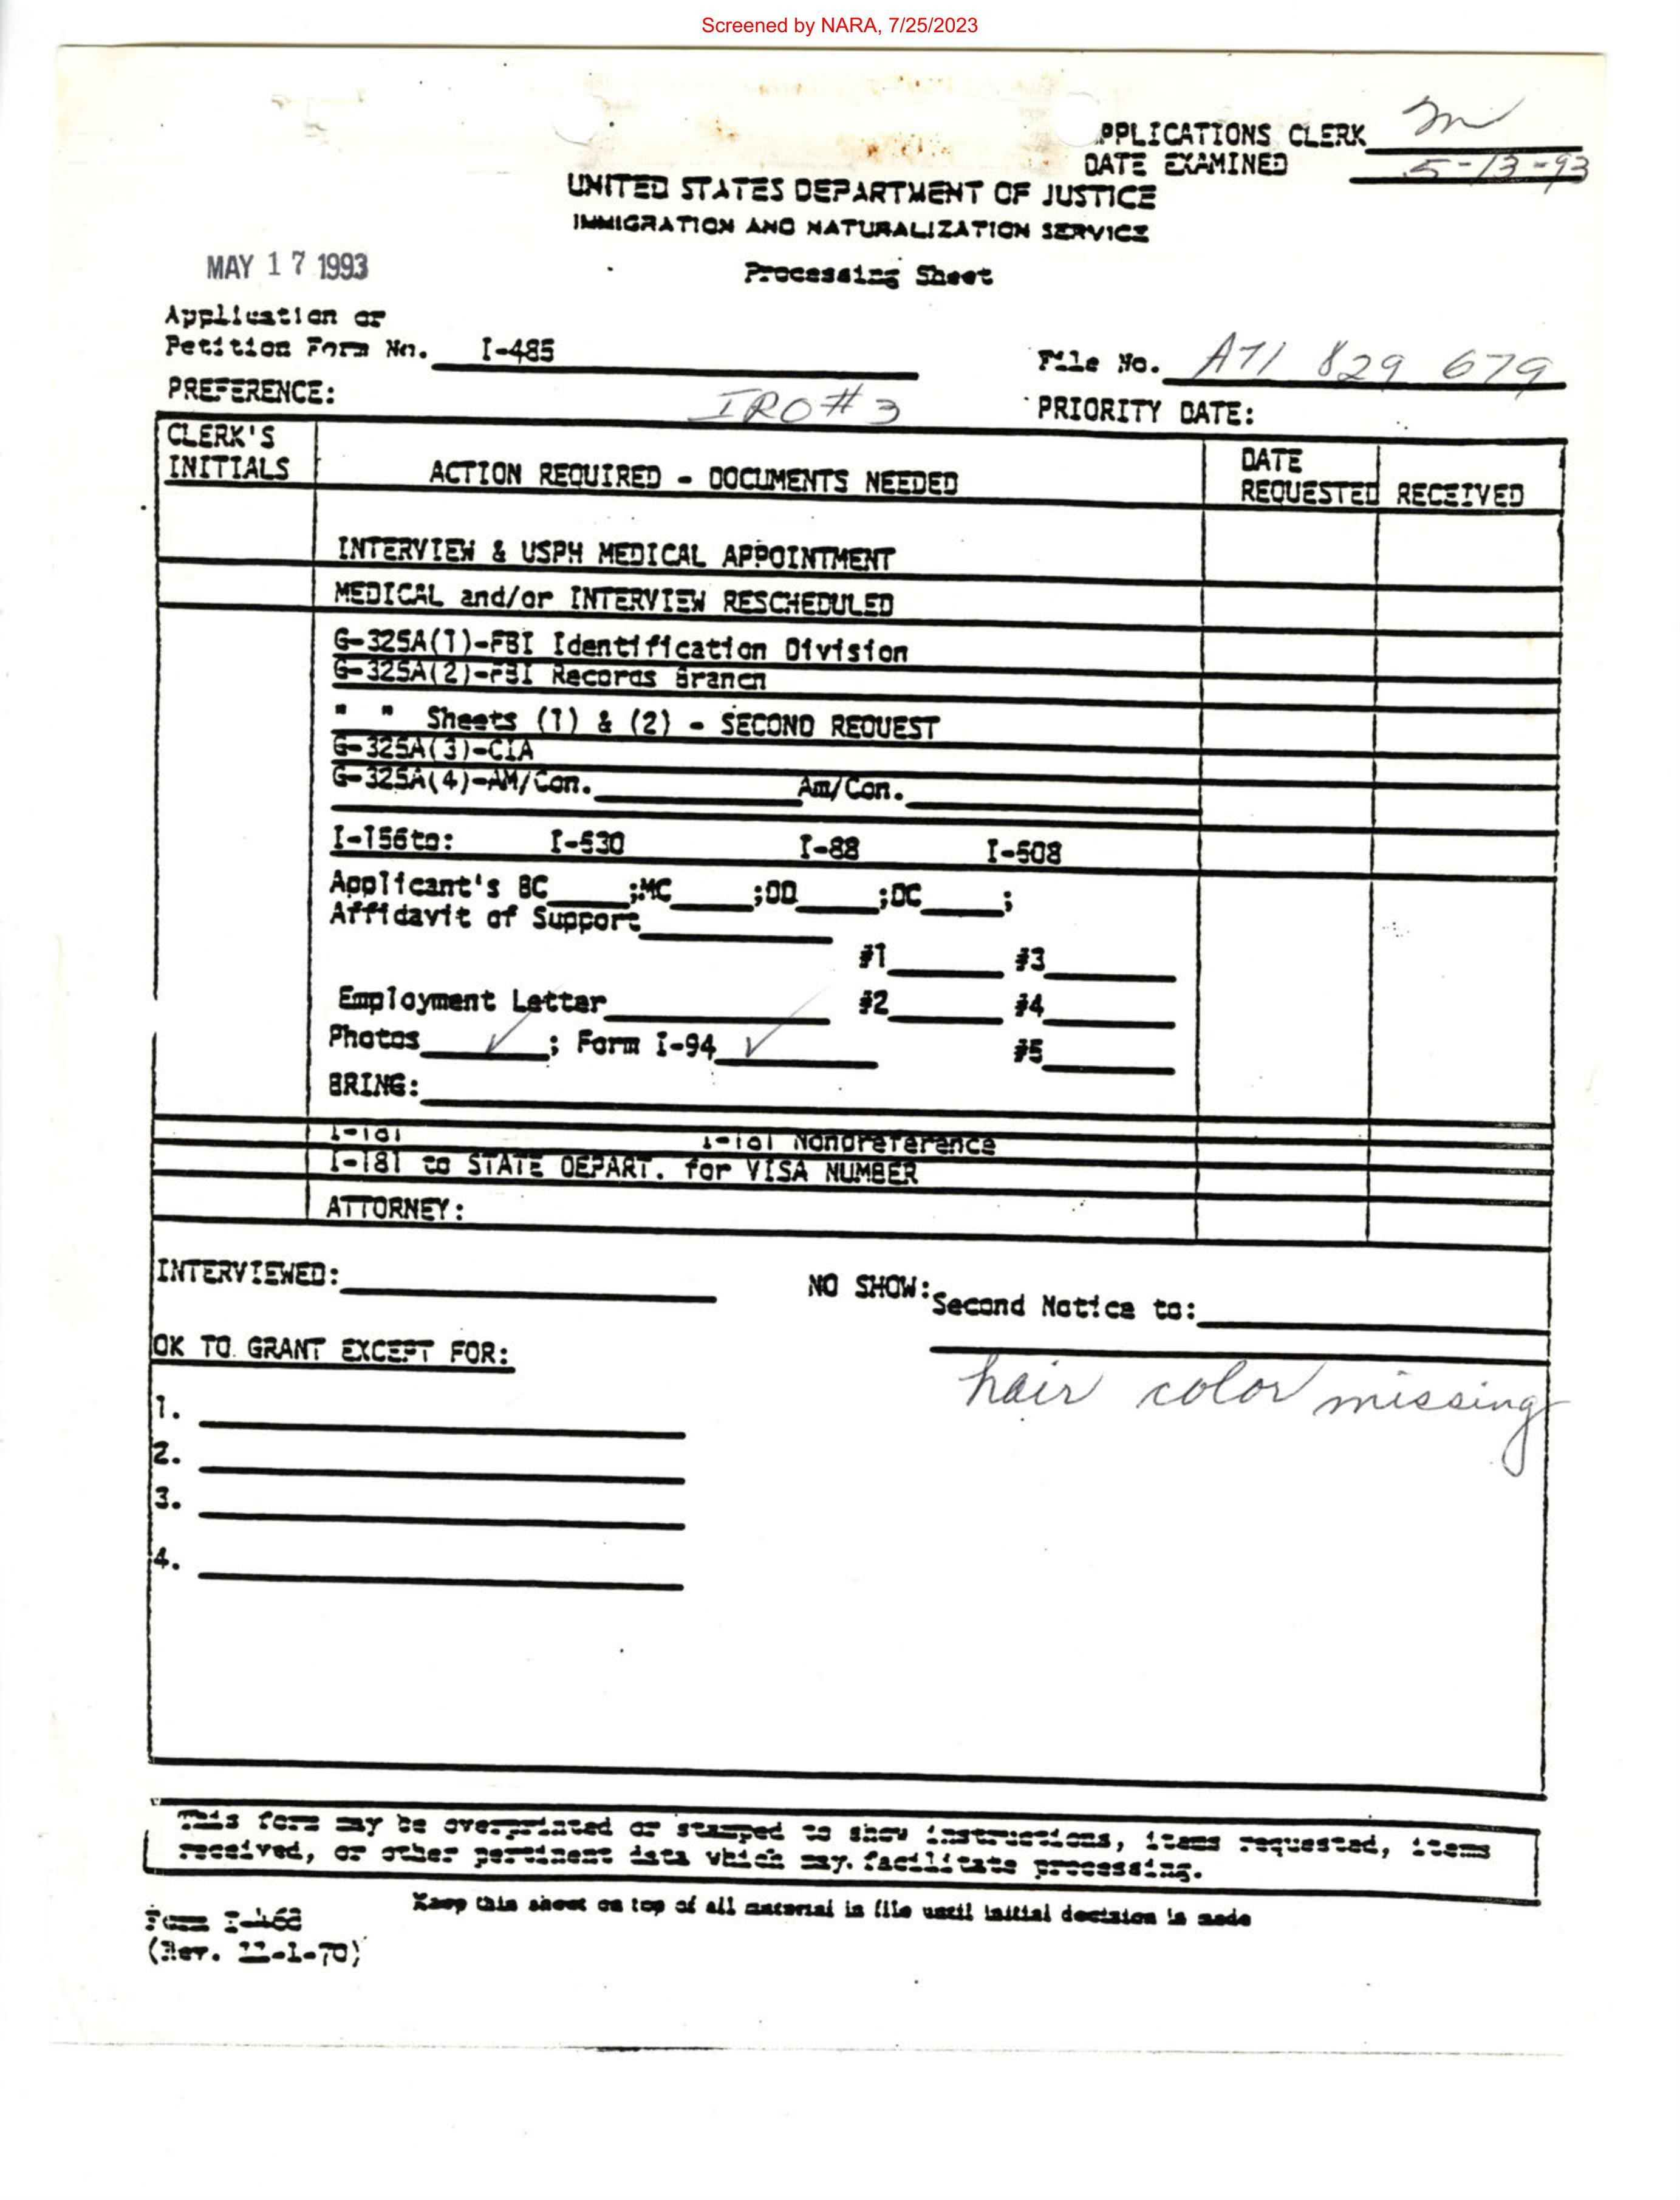 Screened by NARA, 7/25/2023
PPLICATIONS CLERK m
DATE EXAMINED 5-13-93
UNITED STATES DEPARTMENT OF JUSTICE
IMMIGRATION AND NATURALIZATION SERVICE
MAY 17 1993
Processing Sheet
Application or
Petition Form No. I-485
File No. A71 829 679
PREFERENCE: IRO#3
PRIORITY DATE:
CLERK'S
INITIALS
ACTION REQUIRED - DOCUMENTS NEEDED
DATE
REQUESTED RECEIVED
INTERVIEW & USPH MEDICAL APPOINTMENT
MEDICAL and/or INTERVIEW RESCHEDULED
G-325A(1)-FBI Identification Division
G-325A(2)-FBI Records Branch
" " Sheets (1) & (2) - SECOND REQUEST
G-325A(3)-CIA
G-325A(4)-AM/Con. Am/Con.
I-156to: I-530 I-88 I-508
Applicant's BC ;MC ;DD ;DC ;
Affidavit of Support
#1 #3
Employment Letter #2 #4
Photos ✓ ; Form I-94 ✓ #5
BRING:
I-181 I-181 Nonpreference
I-181 to STATE DEPART. for VISA NUMBER
ATTORNEY:
INTERVIEWED:
NO SHOW: Second Notice to:
OK TO GRANT EXCEPT FOR:
hair color missing
1.
2.
3.
4.
This form may be overprinted or stamped to show instructions, items requested, items
received, or other pertinent data which may. facilitate processing.
Keep this sheet on top of all material in file until initial decision is made
Form I-468
(Rev. 11-1-70)